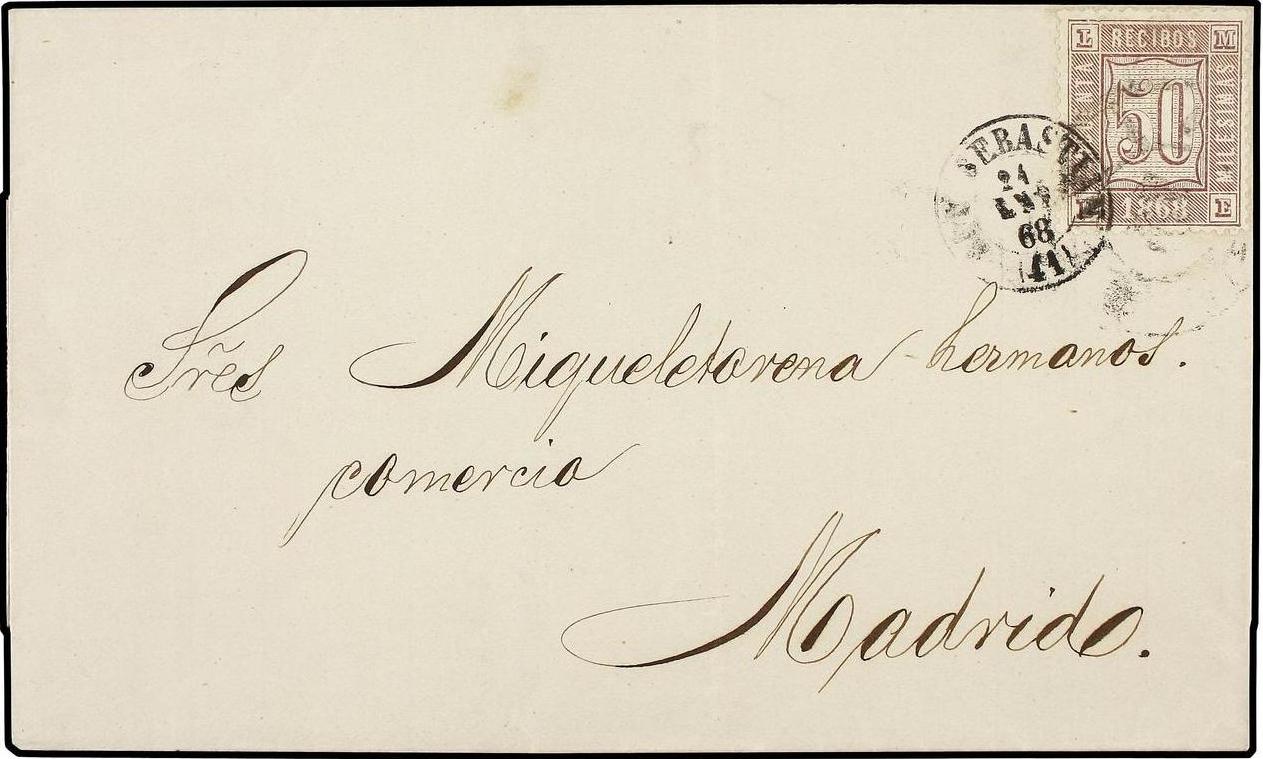 L RECIBOS M
50
MILESMAS
1868
E
SAN SEBASTIAN
21
ENE
68
(41)
Sr̃es Migueletorena hermanos.
comercio
Madrid.